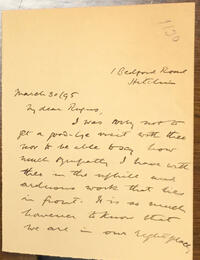 1 Bedford Road
Hitchin
March 30/95
My dear Rufus,
I was sorry not to
get a good-bye visit with thee
nor to be able to say how
much sympathy I have with
thee in the uphill and
arduous work that lies
in front. It is so much
however to know that
we are in our right place,